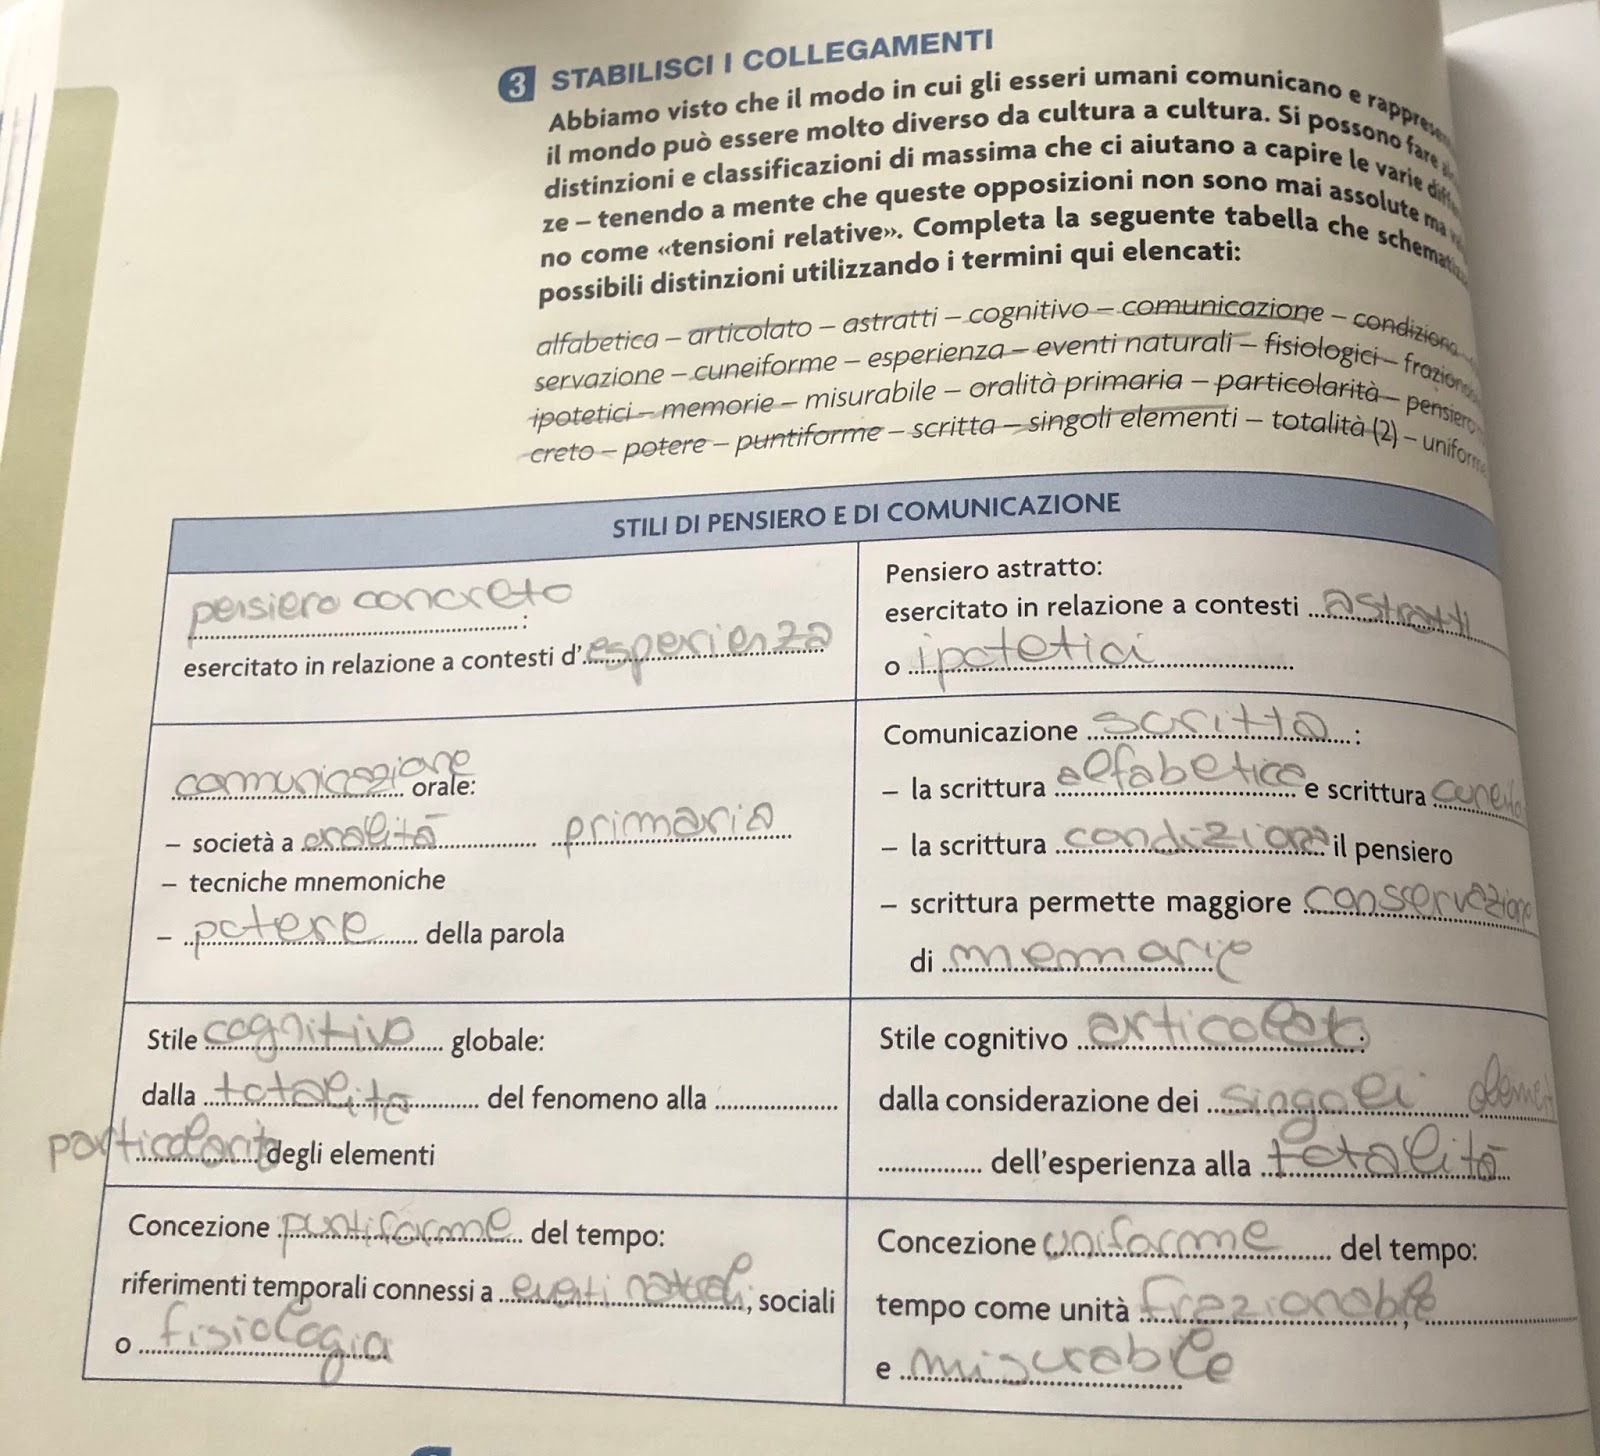 3 STABILISCI I COLLEGAMENTI
Abbiamo visto che il modo in cui gli esseri umani comunicano e
il mondo può essere molto diverso da cultura a cultura. Si possono fare
distinzioni e classificazioni di massima che ci aiutano a capire le varie
ze – tenendo a mente che queste opposizioni non sono mai assolute ma
no come «tensioni relative». Completa la seguente tabella che
possibili distinzioni utilizzando i termini qui elencati:
alfabetica – articolato – astratti – cognitivo – comunicazione – condiziona
servazione – cuneiforme – esperienza – eventi naturali – fisiologici –
ipotetici – memorie – misurabile – oralità primaria – particolarità – pensiero
creto – potere – puntiforme – scritta – singoli elementi – totalità (2) – uniforme
STILI DI PENSIERO E DI COMUNICAZIONE
pensiero concreto :
esercitato in relazione a contesti d'esperienza
Pensiero astratto:
esercitato in relazione a contesti astratti
o ipotetici
comunicazione orale:
– società a oralità primaria
– tecniche mnemoniche
– potere della parola
Comunicazione scritta :
– la scrittura alfabetica e scrittura
– la scrittura condiziona il pensiero
– scrittura permette maggiore conservazione
di memorie
Stile cognitivo globale:
dalla totalità del fenomeno alla
particolarità degli elementi
Stile cognitivo articolato :
dalla considerazione dei singoli
dell'esperienza alla totalità
Concezione puntiforme del tempo:
riferimenti temporali connessi a eventi naturali, sociali
o fisiologia
Concezione uniforme del tempo:
tempo come unità frazionabile,
e misurabile